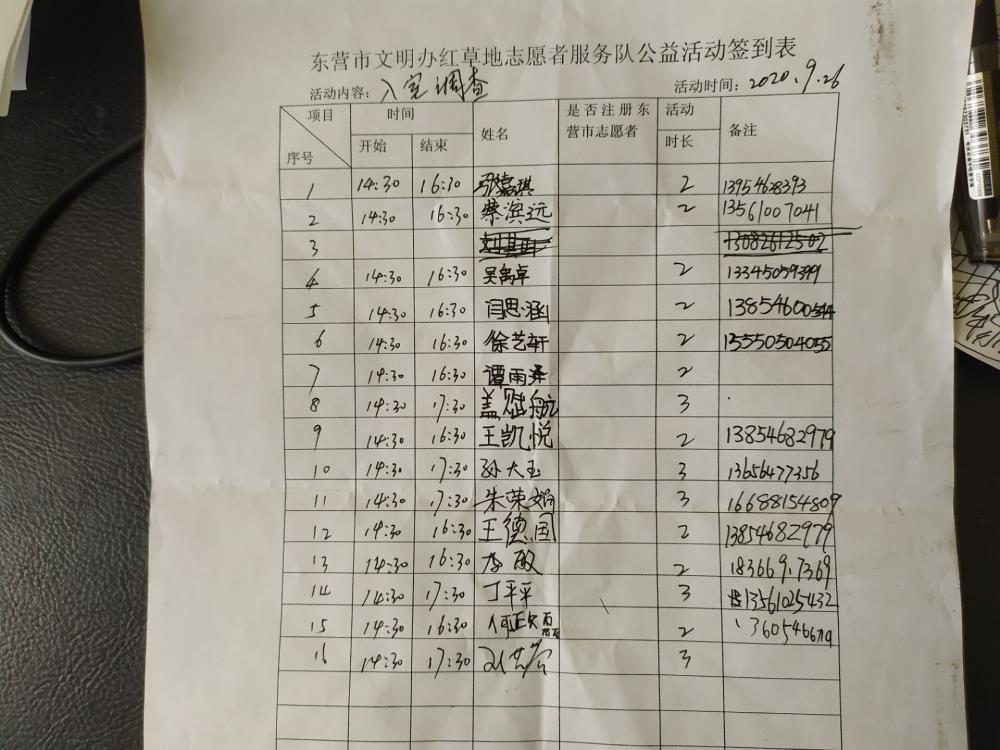 东营市文明办红草地志愿者服务队公益活动签到表
活动内容：入户调查 活动时间：2020.9.26
项目 时间 姓名 是否注册东营市志愿者 活动时长 备注
序号 开始 结束
1 14:30 16:30 张嘉琪 2 13954628393
2 14:30 16:30 蔡滨远 2 13561007041
3 13082612502
4 14:30 16:30 吴禹卓 2 13345059399
5 14:30 16:30 闫思涵 2 13854600544
6 14:30 16:30 徐艺轩 2 15550504055
7 14:30 16:30 谭雨泽 2
8 14:30 17:30 盖 航 3
9 14:30 16:30 王凯悦 2 13854682979
10 14:30 17:30 孙大玉 3 13656477356
11 14:30 17:30 朱荣娟 3 16688154809
12 14:30 16:30 王德国 2 13854682979
13 14:30 16:30 李敏 2 18366917369
14 14:30 17:30 丁平平 3 13561025432
15 14:30 16:30 2
16 14:30 17:30 3